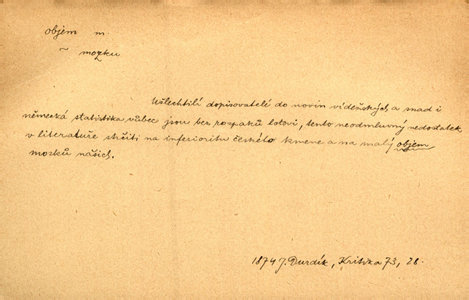 objem m.
~ mozku
Ušlechtilí dopisovatelé do novin vídeňských, a snad i
německá statistika vůbec jsou bez rozpaků hotovi, tento neodmluvný nedostatek
v literatuře sčítiti na inferioritu českého kmene a na malý objem
mozků našich.
1874 J. Durdík, Kritika 73, 28.